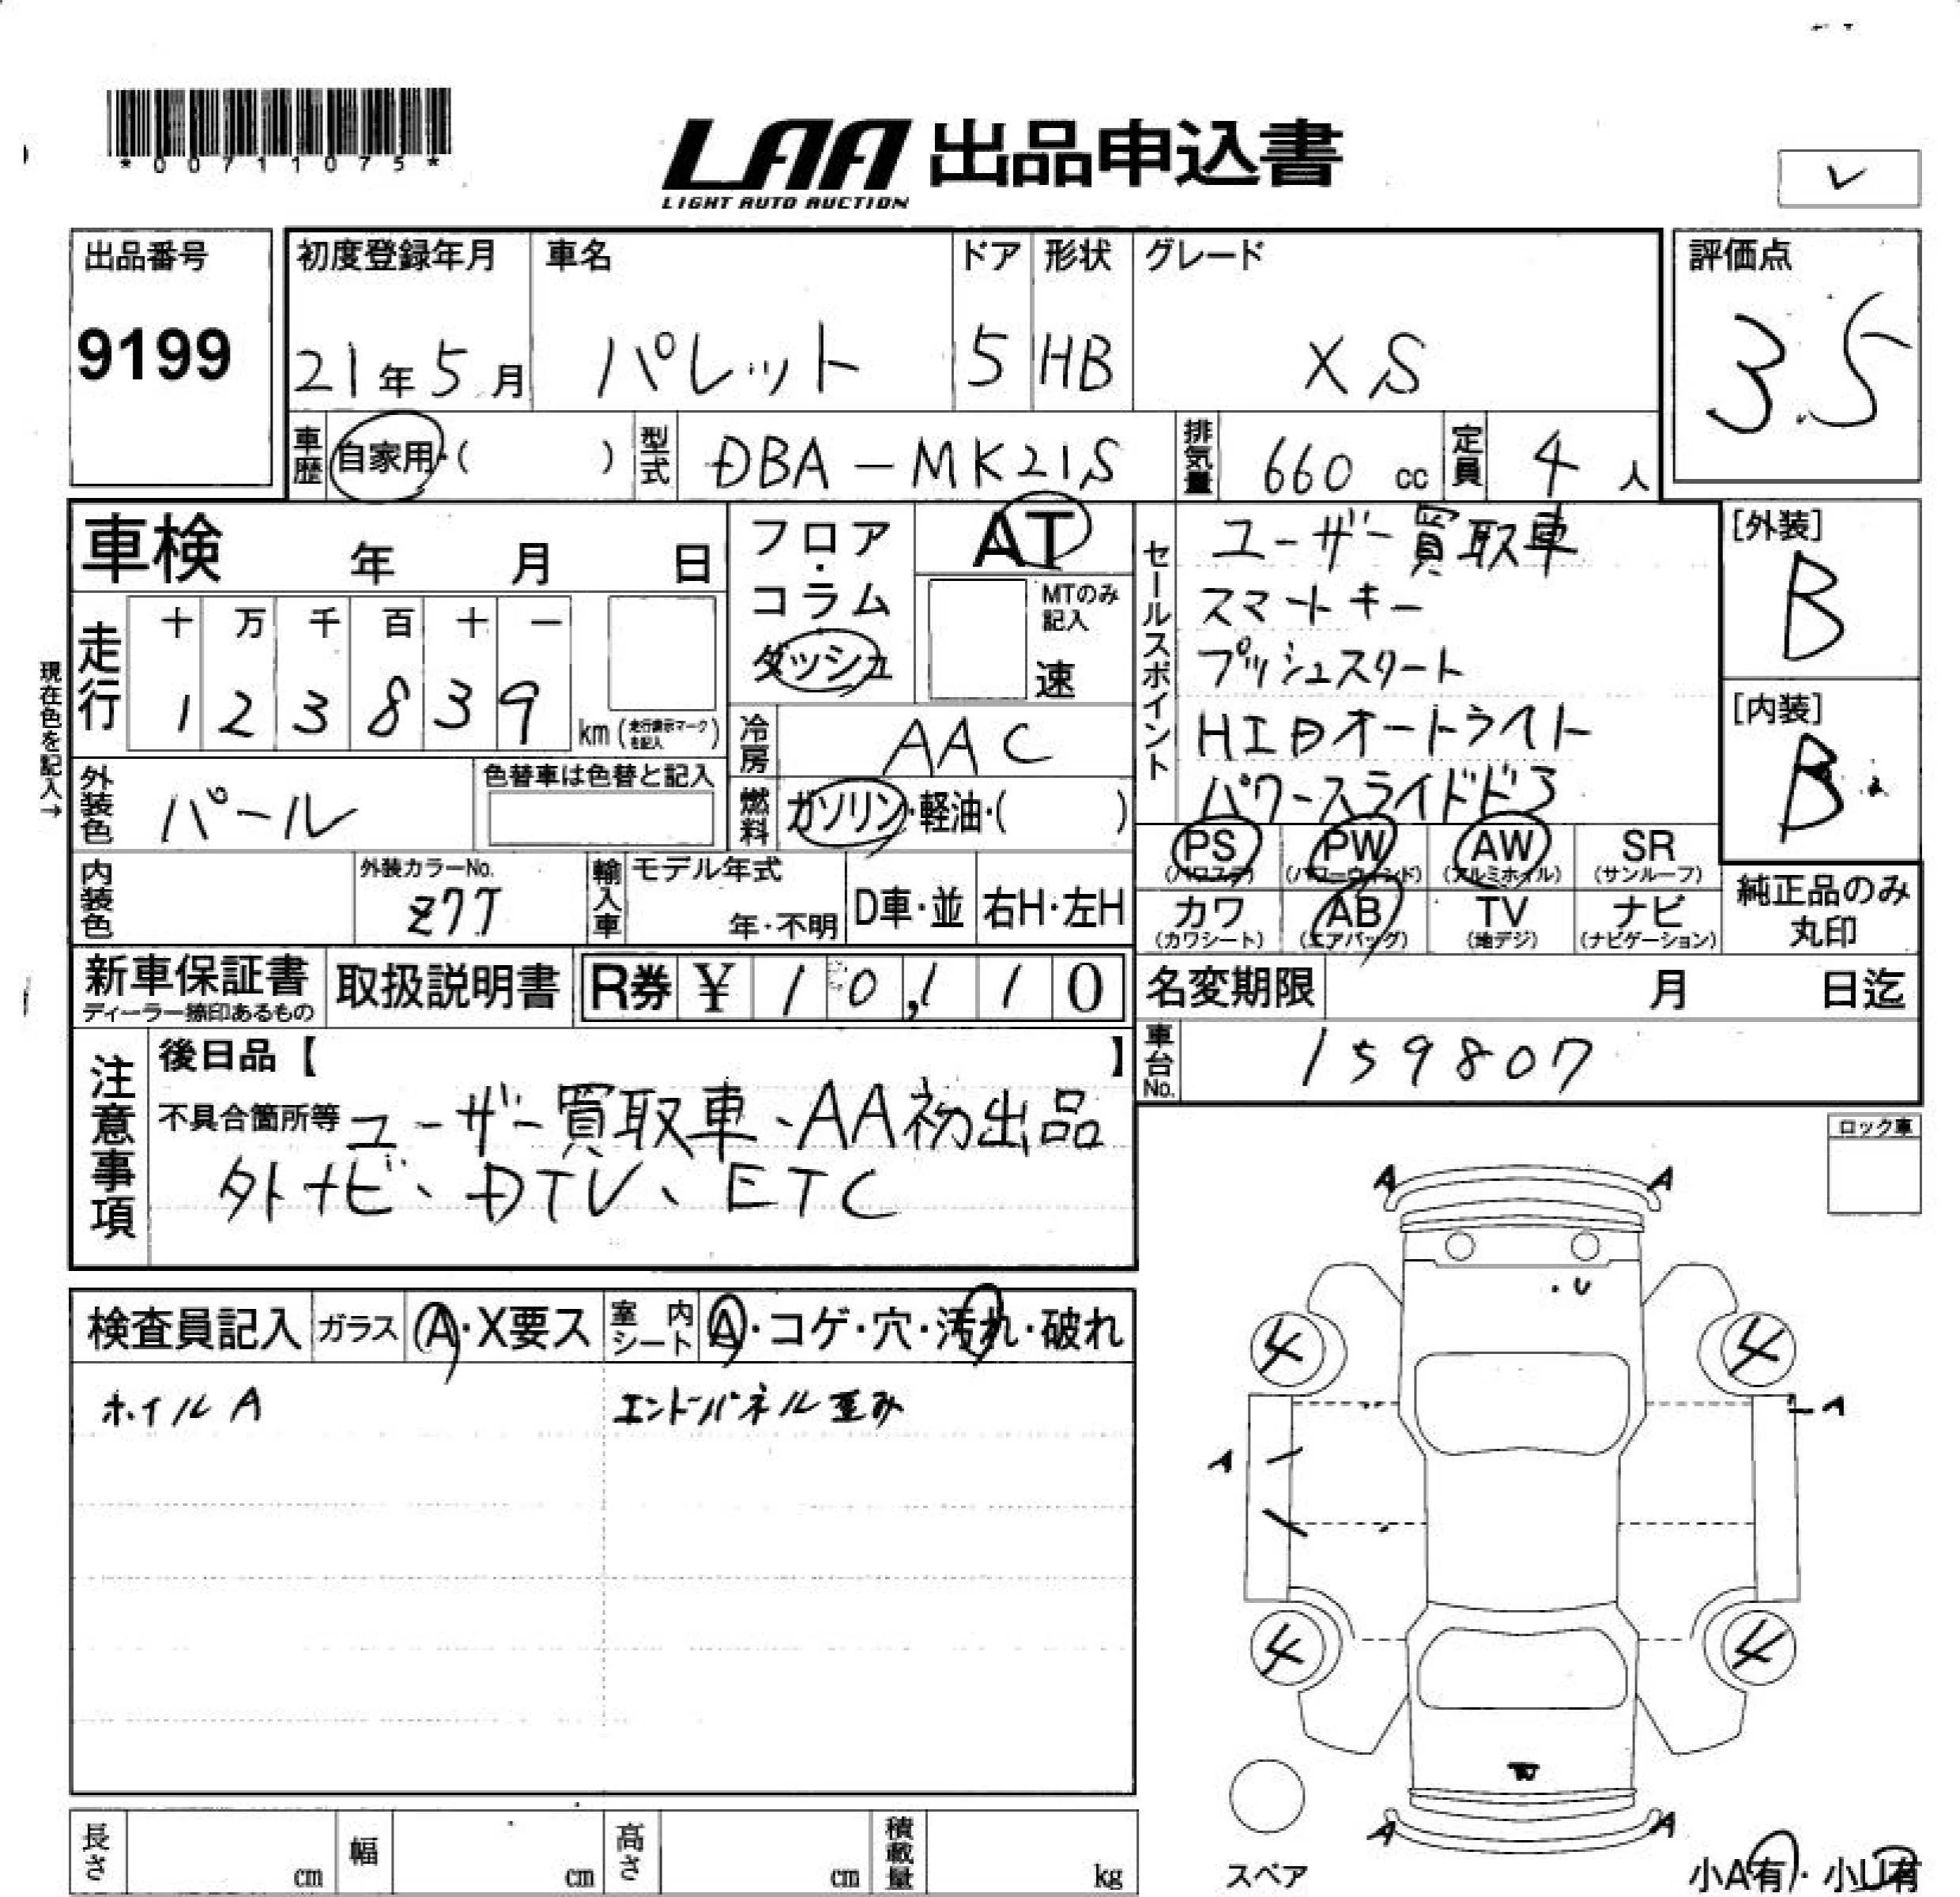 *00711075*
LAA 出品申込書
LIGHT AUTO AUCTION
出品番号
9199
初度登録年月 車名 ドア 形状 グレード
21年5月 パレット 5 HB XS
評価点
3.5
車歴 自家用・( ) 型式 DBA-MK21S 排気量 660 cc 定員 4 人
車検 年 月 日
フロア・コラム
ダッシュ
AT
MTのみ記入
速
走行
十 万 千 百 十 一
1 2 3 8 3 9 km(走行表示マークを記入)
現在色を記入→
冷房 AAC
外装色 パール
色替車は色替と記入
燃料 ガソリン・軽油・( )
内装色
外装カラーNo.
Z7T
輸入車 モデル年式
年・不明 D車・並 右H・左H
セールスポイント
ユーザー買取車
スマートキー
プッシュスタート
HIDオートライト
パワースライドドア
[外装]
B
[内装]
B
PS (パワステ) PW (パワーウィンド) AW (アルミホイル) SR (サンルーフ)
カワ (カワシート) AB (エアバッグ) TV (地デジ) ナビ (ナビゲーション)
純正品のみ
丸印
新車保証書
ディーラー捺印あるもの
取扱説明書 R券 ¥ 10,110
名変期限 月 日迄
車台No. 159807
注意事項
後日品【 】
不具合箇所等 ユーザー買取車、AA初出品
外ナビ、DTV、ETC
ロック車
検査員記入 ガラス A・X要ス 室内シート A・コゲ・穴・汚れ・破れ
ホイルA エンドパネル歪み
A A
U
4 4
A
A
4 4
A A
スペア
小A有・小U有
長さ cm 幅 cm 高さ cm 積載量 kg